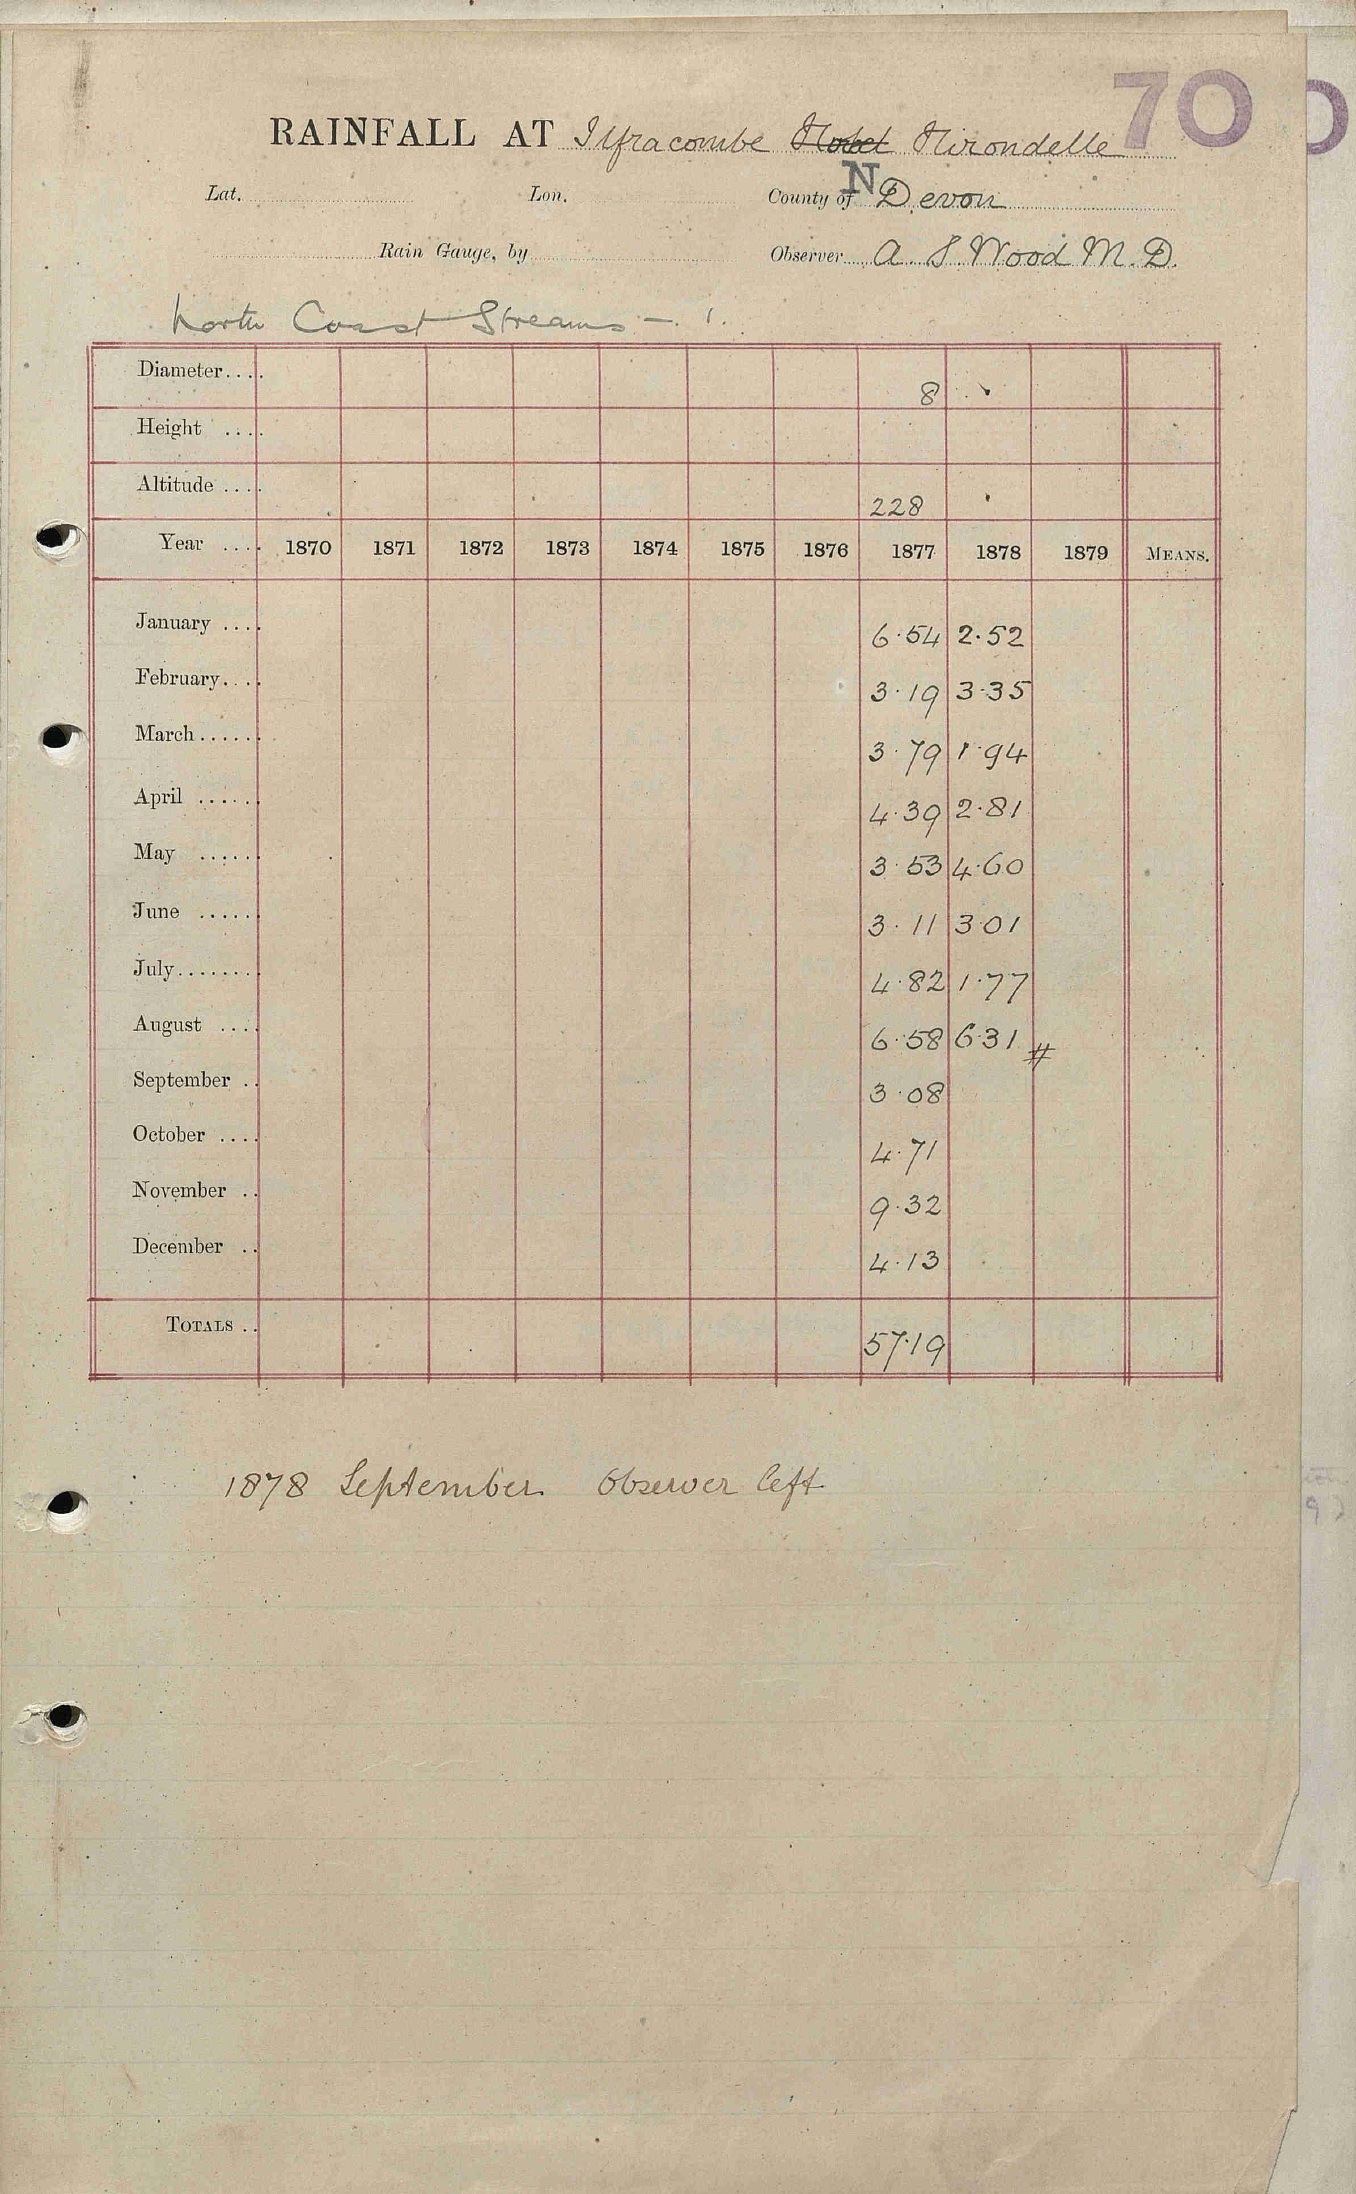 70
RAINFALL AT Ilfracombe Hotel Hirondelle
Lat. Lon. County of N Devon
Rain Gauge, by Observer A. S. Wood M. D.
North Coast Streams – 1.
Diameter.... 8
Height ....
Altitude .... 228
Year .... 1870 1871 1872 1873 1874 1875 1876 1877 1878 1879 MEANS.
January .... 6.54 2.52
February.... 3.19 3.35
March...... 3.79 1.94
April ...... 4.39 2.81
May ...... 3.53 4.60
June ...... 3.11 3.01
July........ 4.82 1.77
August .... 6.58 6.31 #
September .. 3.08
October .... 4.71
November .. 9.32
December .. 4.13
TOTALS .. 57.19
1878 September Observer left